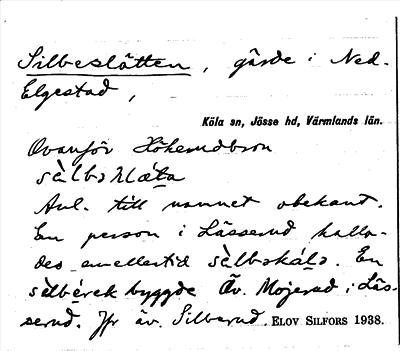 Silbeslätten, gärde i Ned.
Elgestad,
Köla sn, Jösse hd, Värmlands län.
Ovanför Hökerudbron
sàlbəslæta
Anl. till namnet obekant.
En person i Lässerud kalla-
des emellertid sàlbəkálə. En
sàlbérek byggde Öv. Mojerud i Läs-
serud. Jfr äv. Silberud. ELOV SILFORS 1938.